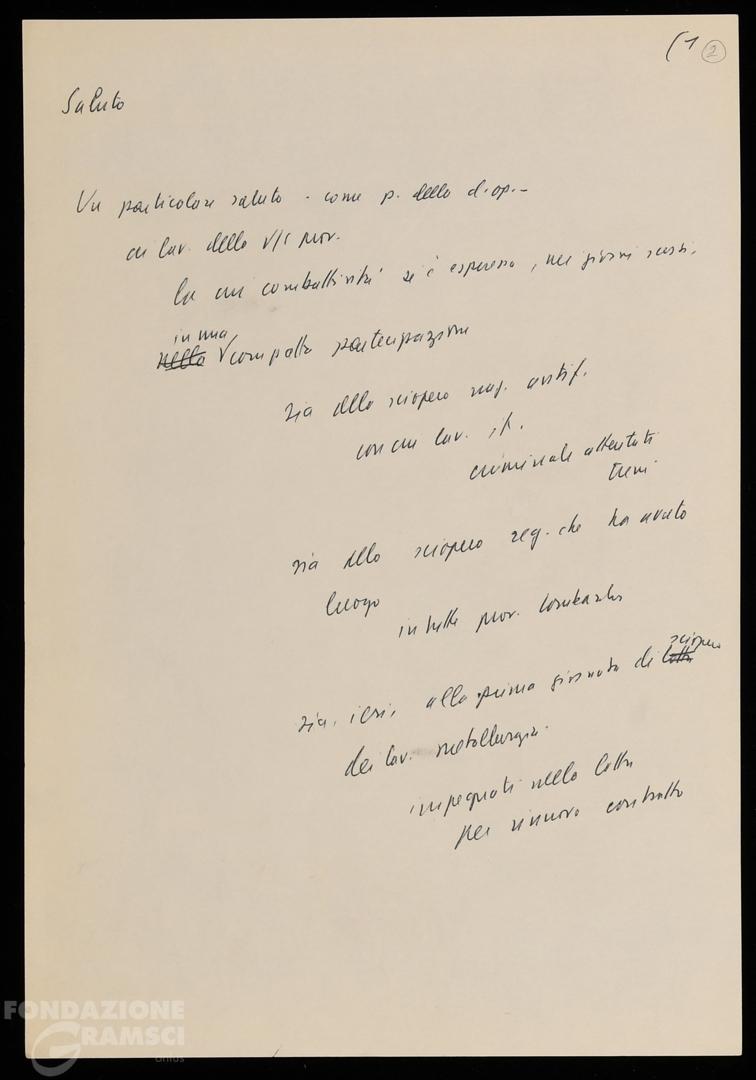 (1 2
Saluto
Un particolare saluto - come p. della cl. op. -
ai lav. della v/s prov.
la cui combattività si è espressa, nei giorni scorsi,
in una
nella compatta partecipazione
sia allo sciopero naz. antif.
con cui lav. it.
criminale attentati
treni
sia allo sciopero reg. che ha avuto
luogo
in tutte prov. lombarde
sia, ieri, alla prima giornata di lotta sciopero
dei lav. metallurgici
impegnati nella lotta
per rinnovo contratto
FONDAZIONE
GRAMSCI
onlus